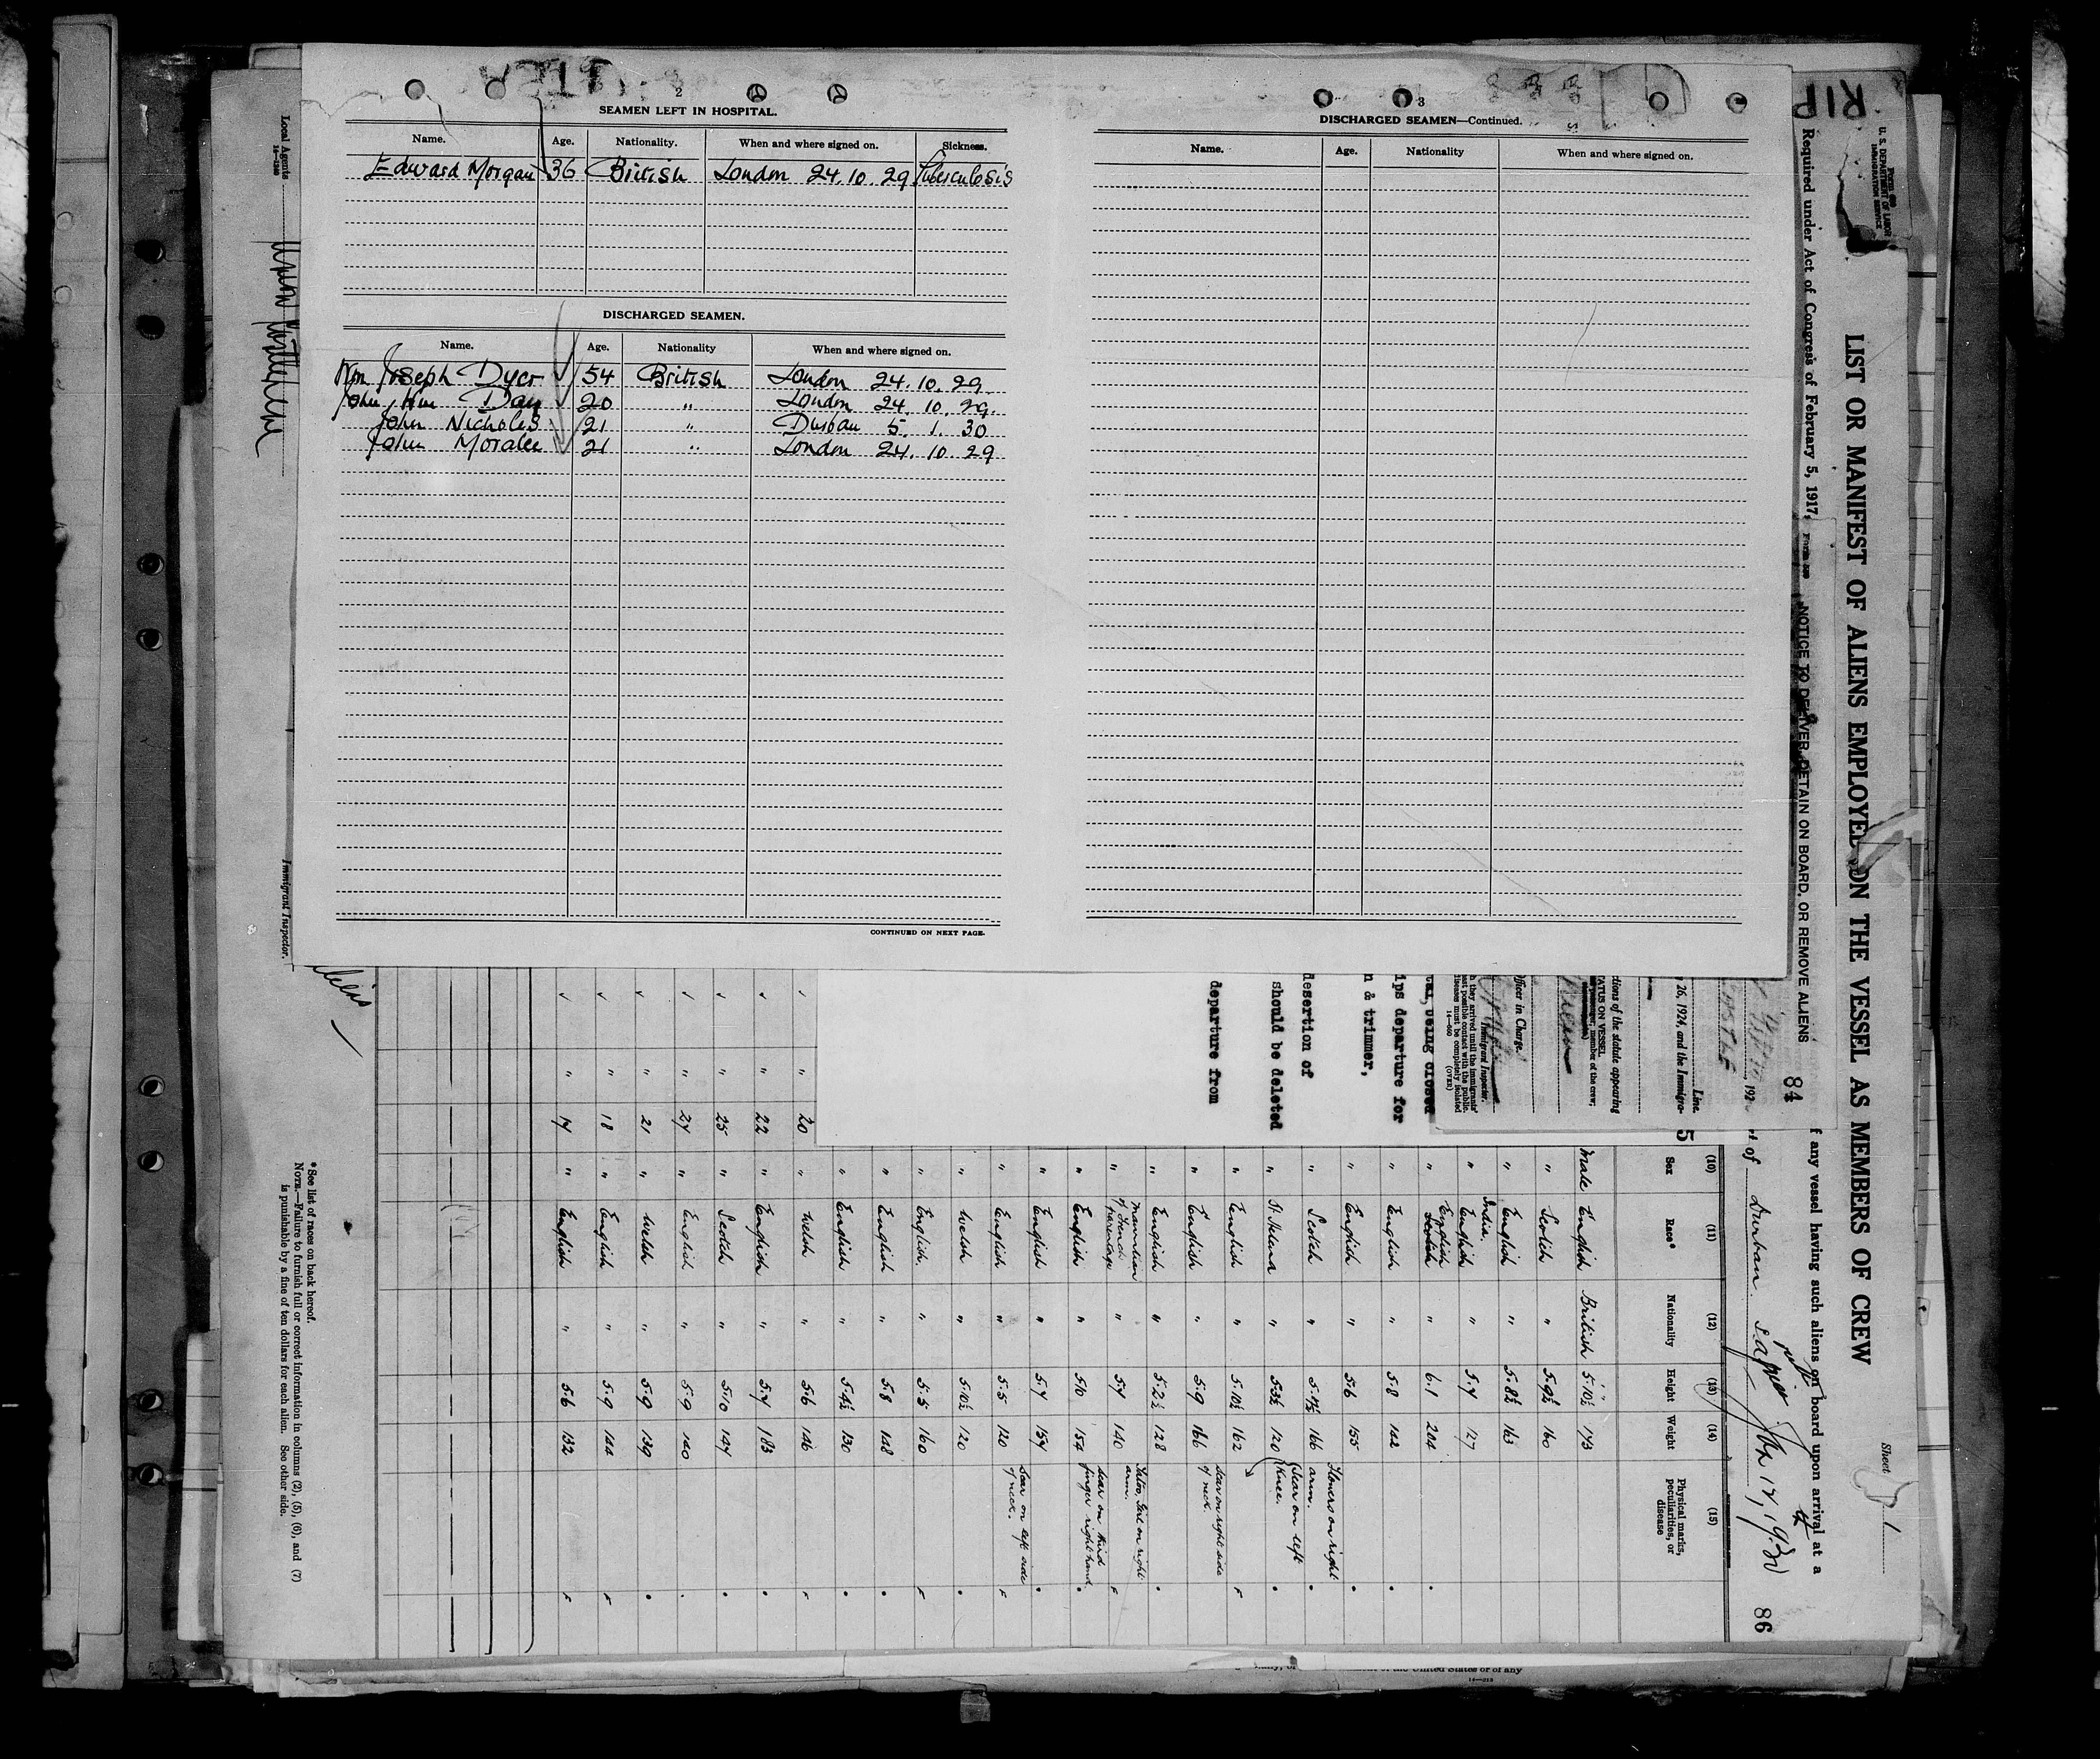 2
SEAMEN LEFT IN HOSPITAL.
Name. Age. Nationality. When and where signed on. Sickness.
Edward Morgan 36 British London 24.10.29 Tuberculosis
DISCHARGED SEAMEN.
Name. Age. Nationality When and where signed on.
Wm Joseph Dyer 54 British London 24.10.29
John Wm Day 20 " London 24.10.29.
John Nicholls 21 " Durban 5.1.30
John Moralee 21 " London 24.10.29
CONTINUED ON NEXT PAGE.
3
DISCHARGED SEAMEN—Continued.
Name. Age. Nationality When and where signed on.
Local Agents
Immigrant Inspector.
U. S. DEPARTMENT OF LABOR
IMMIGRATION SERVICE
LIST OR MANIFEST OF ALIENS EMPLOYED ON THE VESSEL AS MEMBERS OF CREW
Sheet 1
Required under Act of Congress of February 5, 1917,
NOTICE TO DELIVER, DETAIN ON BOARD, OR REMOVE ALIENS
84
f any vessel having such aliens on board upon arrival at a
t of Durban. Jan 17, 1930
86
Line.
, 192
26, 1924, and the Immigra-
5
ctions of the statute appearing
TATUS ON VESSEL
member of the crew;
Officer in Charge.
Immigrant Inspector.
(OVER)
tal, being closed
ips departure for
n & trimmer,
desertion of
should be deleted
departure from
(10) (11) (12) (13) (14) (15)
Sex Race* Nationality Height Weight Physical marks, peculiarities, or disease
Male English British 5.10½ 173
" Scotch " 5.9½ 160
" English " 5.8½ 163
" India, English " 5.7 127
" English " 6.1 204
" English " 5.8 142
" English " 5.6 155
" Scotch " 166 Flowers on right arm.
" St. Helena " 5.3½ 120 Scar on left knee.
" English " 5.10½ 162
" English " 5.9 166 Scar on right side of neck.
" English " 5.2½ 128
" Mauritian of French parentage " 5.7 140 Tattoo, Girl on right arm.
" English " 5.10 154 Scar on third finger right hand.
" English " 5.7 157
" English " 5.5 120 Scar on left side of neck.
" Welsh " 5.10½ 120
" English. " 5.5 160
" English " 5.8 148
" English " 5.4½ 130
" 20 " Welsh " 5.6 146
" 22 " English " 5.7 183
" 25 " Scotch " 5.10 147
" 27 " English " 5.9 140
" 21 " Welsh " 5.9 139
" 18 " English " 5.9 144
" 17 " English " 5.6 132
*See list of races on back hereof.
NOTE.—Failure to furnish full or correct information in columns (2), (5), (6), and (7)
is punishable by a fine of ten dollars for each alien. See other side.
of the United States or of any